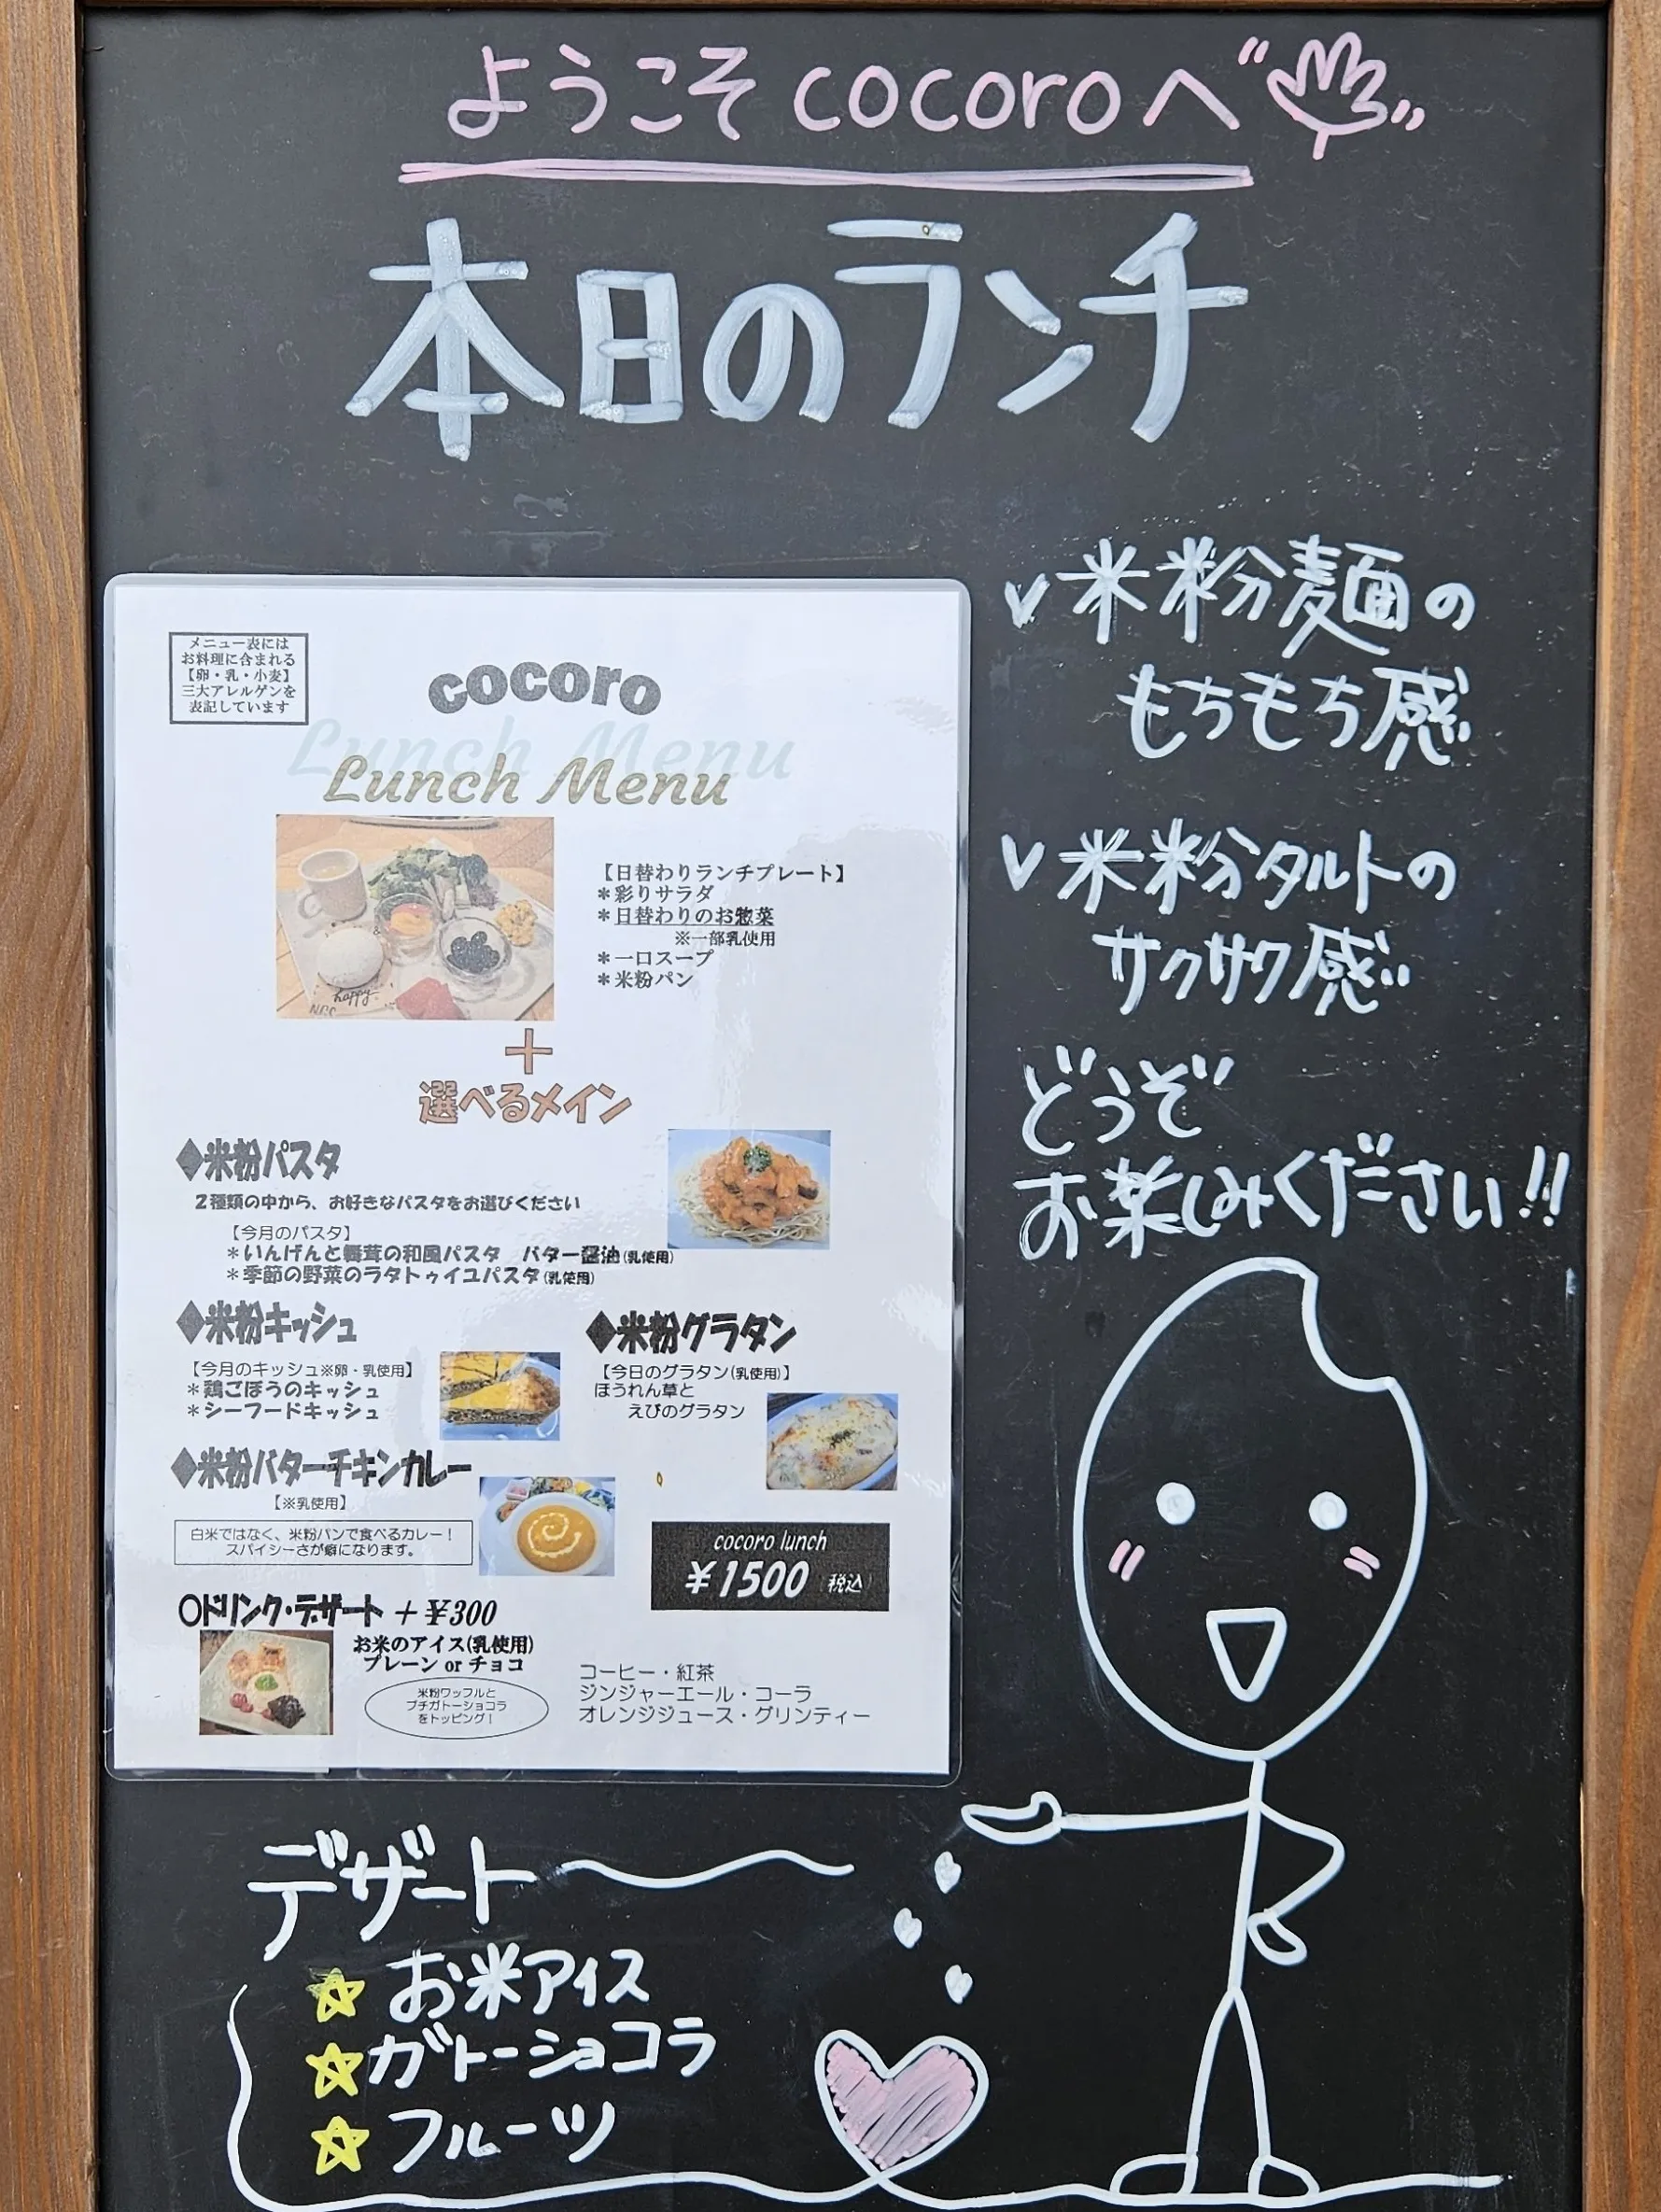 ようこそcocoroへ
本日のランチ
メニュー表には
お料理に含まれる
【卵・乳・小麦】
三大アレルゲンを
表記しています
cocoro
Lunch Menu
Lunch Menu
【日替わりランチプレート】
＊彩りサラダ
＊日替わりのお惣菜
※一部乳使用
＊一口スープ
＊米粉パン
happy
＋
選べるメイン
◆米粉パスタ
２種類の中から、お好きなパスタをお選びください
【今月のパスタ】
＊いんげんと舞茸の和風パスタ　バター醤油(乳使用)
＊季節の野菜のラタトゥイユパスタ(乳使用)
◆米粉キッシュ
【今月のキッシュ※卵・乳使用】
＊鶏ごぼうのキッシュ
＊シーフードキッシュ
◆米粉グラタン
【今日のグラタン(乳使用)】
ほうれん草と
えびのグラタン
◆米粉バターチキンカレー
【※乳使用】
白米ではなく、米粉パンで食べるカレー！
スパイシーさが癖になります。
cocoro lunch
￥1500 税込
〇ドリンク・デザート ＋￥300
お米のアイス(乳使用)
プレーン or チョコ
米粉ワッフルと
プチガトーショコラ
をトッピング！
コーヒー・紅茶
ジンジャーエール・コーラ
オレンジジュース・グリンティー
✓米粉麺の
もちもち感
✓米粉タルトの
サクサク感
どうぞ
お楽しみください!!
デザート
☆お米アイス
☆ガトーショコラ
☆フルーツ